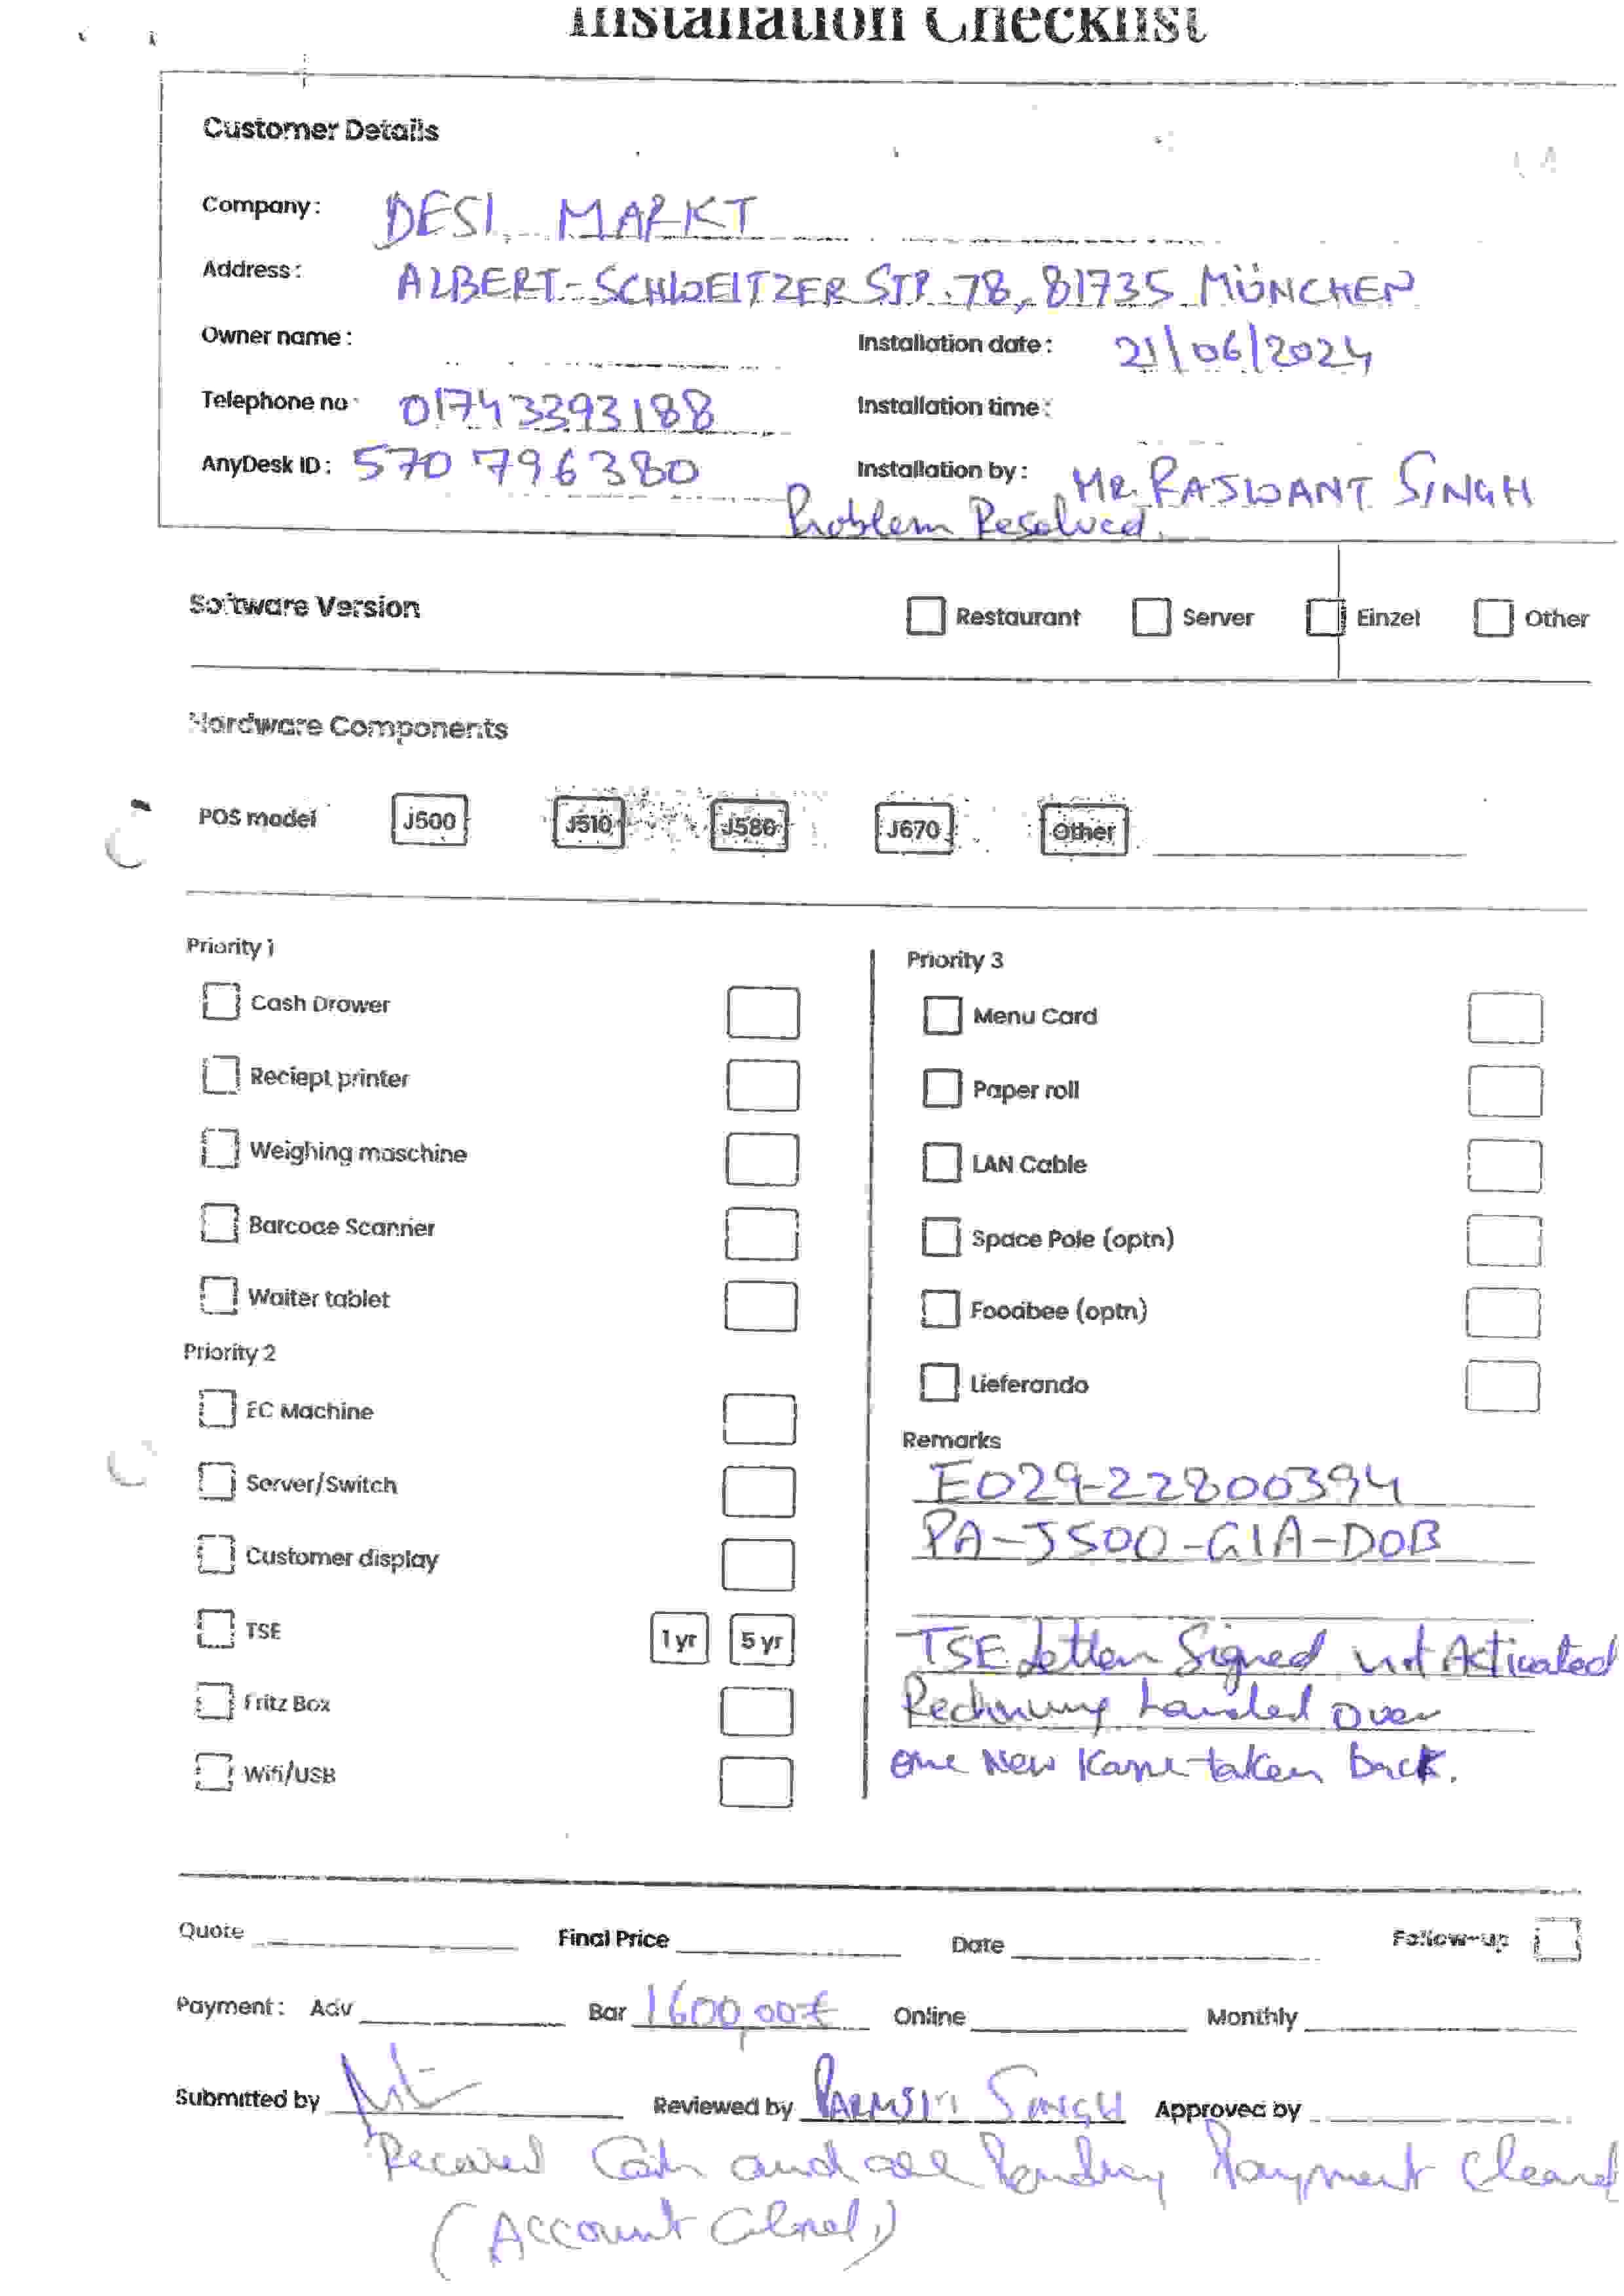 Installation Checklist
Customer Details
Company: DESI MARKT
Address: ALBERT-SCHWEITZER STR. 78, 81735 MÜNCHEN
Owner name:
Installation date: 21/06/2024
Telephone no: 01743393188
Installation time:
AnyDesk ID: 570 796380
Installation by: MR. RASWANT SINGH
Problem Resolved.
Software Version
Restaurant Server Einzel Other
Hardware Components
POS model J500 J510 J580 J670 Other
Priority 1
Cash Drawer
Reciept printer
Weighing maschine
Barcode Scanner
Waiter tablet
Priority 2
EC Machine
Server/Switch
Customer display
TSE 1 yr 5 yr
Fritz Box
Wifi/USB
Priority 3
Menu Card
Paper roll
LAN Cable
Space Pole (optn)
Foodbee (optn)
Lieferando
Remarks
E029-22800394
PA-J500-G1A-DOB
TSE Letter Signed not Activated
Rechnung handed over
one New taken back.
Quote Final Price Date Follow-up
Payment: Adv Bar 1600,00€ Online Monthly
Submitted by Reviewed by SINGH Approved by
Received Cash and all Pending Payment Cleared
(Account Closed)